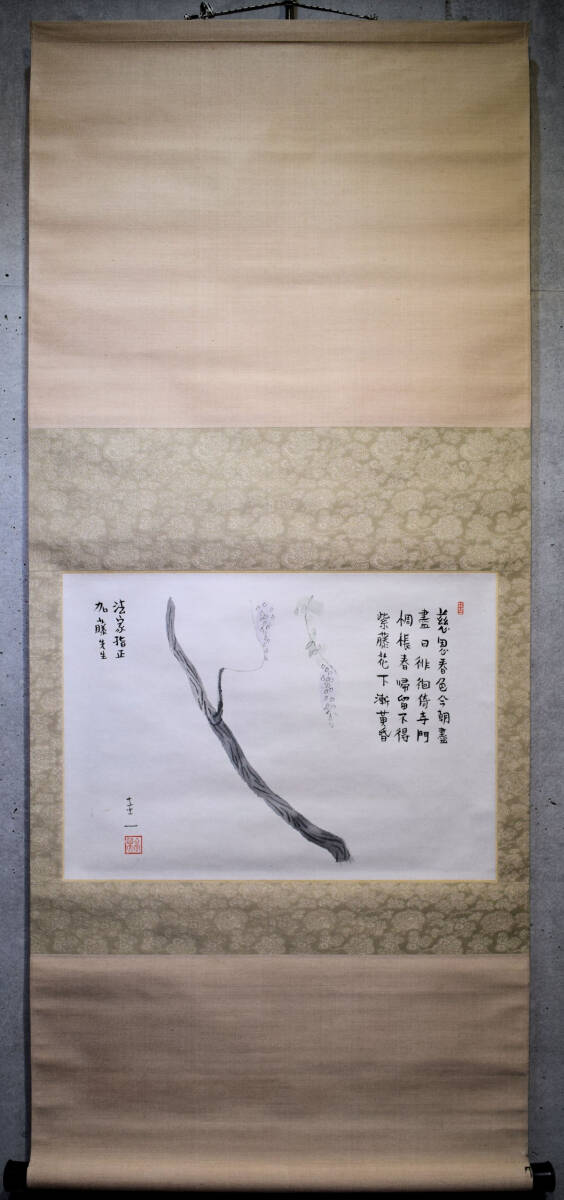 慈恩春色今朝盡
盡日徘徊倚寺門
惆悵春歸留不得
紫藤花下漸黄昏
法家指正
加藤先生